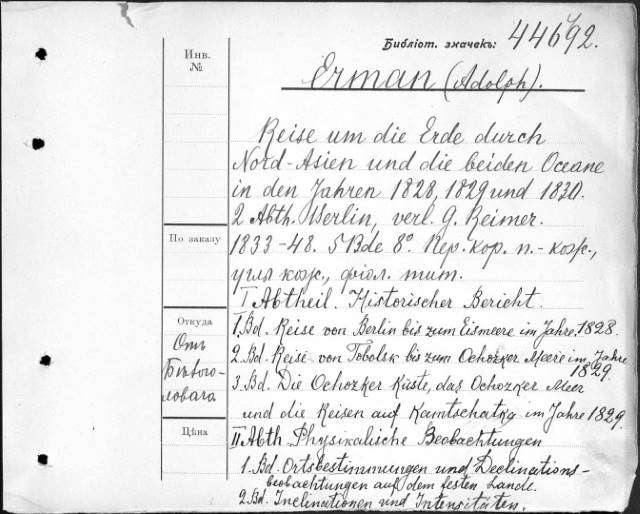 Библіот. значекъ: 44692.
Инв. №
Erman (Adolph).
Reise um die Erde durch
Nord-Asien und die beiden Oceane
in den Jahren 1828, 1829 und 1830.
2 Abth. Berlin, verl. G. Reimer.
По заказу
1833-48. 5 Bde 8º. Пер. кор. п.-кож.,
угля кож., фіол. тит.
I Abtheil. Historischer Bericht.
Откуда
Отъ
Бѣлого-
ловаго
1. Bd. Reise von Berlin bis zum Eismeere im Jahre 1828.
2. Bd. Reise von Tobolsk bis zum Ochozker Meere im Jahre
1829.
3. Bd. Die Ochozker Küste, das Ochozker Meer
und die Reisen auf Kamtschatka im Jahre 1829.
Цѣна
II Abth. Physikalische Beobachtungen
1. Bd. Ortsbestimmungen und Declinations-
beobachtungen auf dem festen Lande.
2. Bd. Inclinationen und Intensitäten.